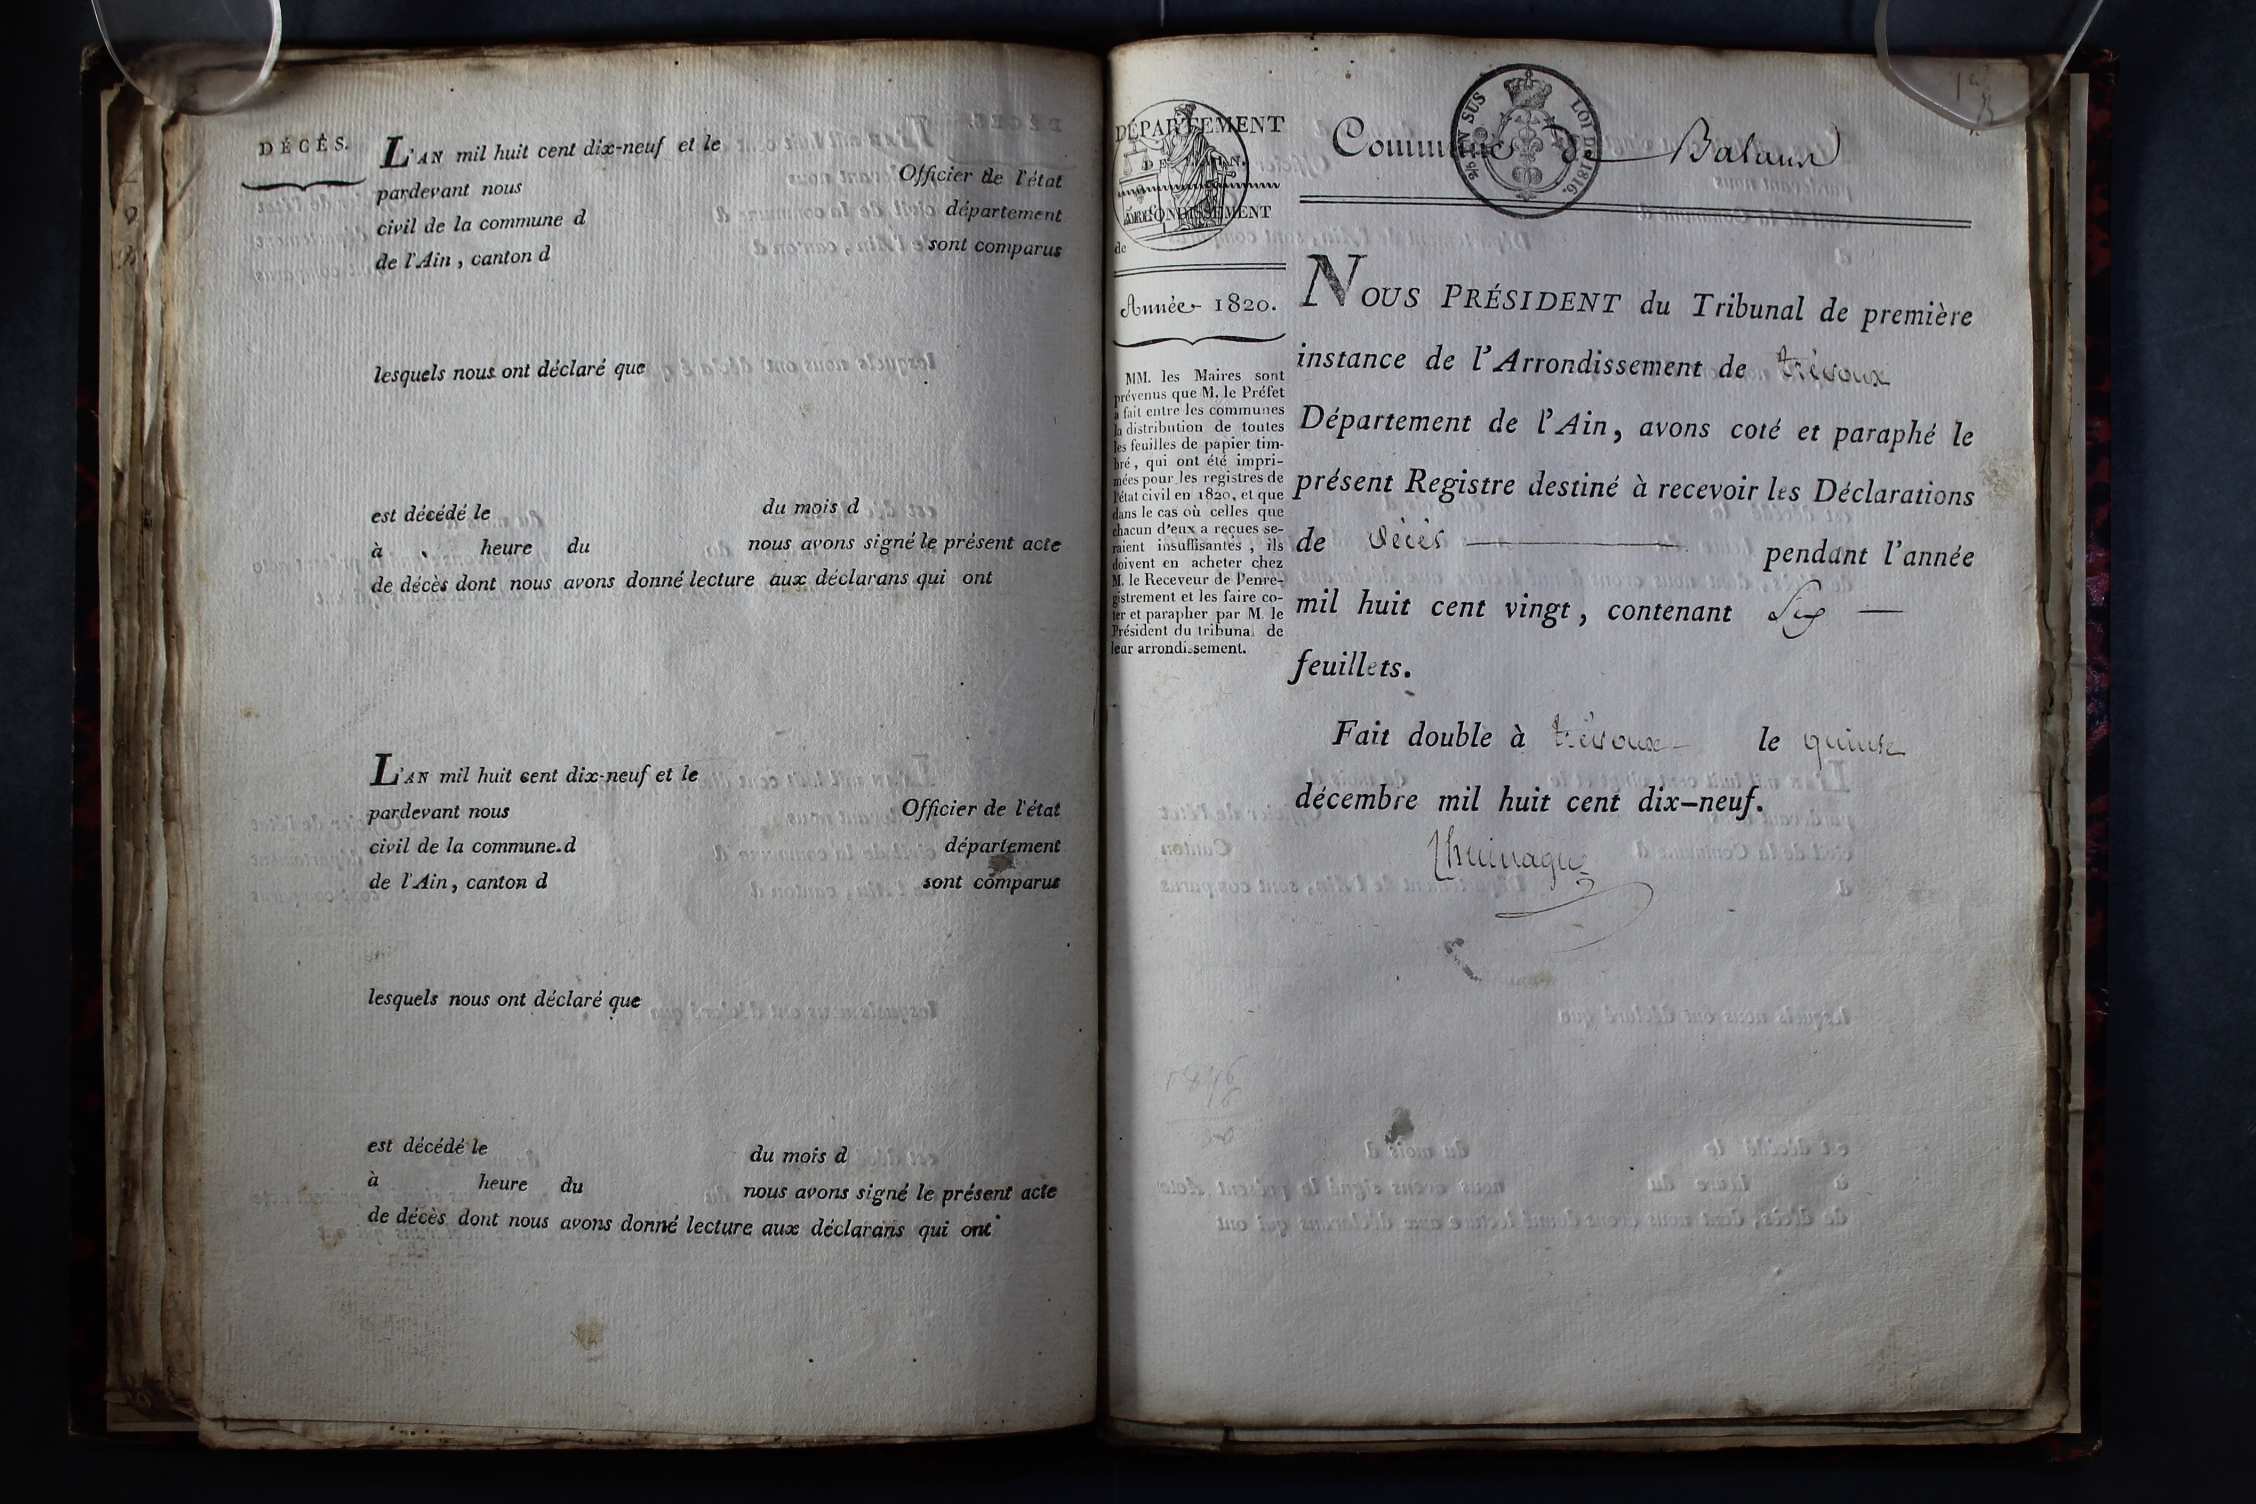 DÉCÈS.
L'AN mil huit cent dix-neuf et le
pardevant nous Officier de l'état
civil de la commune d département
de l'Ain, canton d sont comparus
lesquels nous ont déclaré que
est décédé le du mois d
à heure du nous avons signé le présent acte
de décès dont nous avons donné lecture aux déclarans qui ont
L'AN mil huit cent dix-neuf et le
pardevant nous Officier de l'état
civil de la commune d département
de l'Ain, canton d sont comparus
lesquels nous ont déclaré que
est décédé le du mois d
à heure du nous avons signé le présent acte
de décès dont nous avons donné lecture aux déclarans qui ont
DÉPARTEMENT
DE L'AIN.
ARRONDISSEMENT
de
Année 1820.
MM. les Maires sont
prévenus que M. le Préfet
a fait entre les communes
la distribution de toutes
les feuilles de papier tim-
bré, qui ont été impri-
mées pour les registres de
l'état civil en 1820, et que
dans le cas où celles que
chacun d'eux a reçues se-
raient insuffisantes, ils
doivent en acheter chez
M. le Receveur de l'enre-
gistrement et les faire co-
ter et parapher par M. le
Président du tribunal de
leur arrondissement.
Commune de Balann
EN SUS LOI DE 1816.
NOUS PRÉSIDENT du Tribunal de première
instance de l'Arrondissement de trévoux
Département de l'Ain, avons coté et paraphé le
présent Registre destiné à recevoir les Déclarations
de décès pendant l'année
mil huit cent vingt, contenant Six
feuillets.
Fait double à trévoux le quinze
décembre mil huit cent dix-neuf.